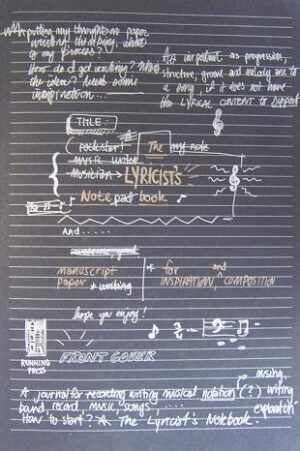 when putting my thoughts on paper
writing, thinking, what
is my process?
How do I get writing? Where
the ideas? Need some
inspiration...
As important as progression,
structure, groove and melody are to
a song, if it does not have
the LYRICAL CONTENT to support
TITLE:
rockstar!
The
my note
music writer
musician
LYRICIST'S
Note pad book
And.....
manuscript
paper
* writing
* for and
INSPIRATION, COMPOSITION
hope you enjoy!
RUNNING
PRESS
FRONT COVER
musing,
A journal for recording writing musical notation (?) writing
band, record, music, songs, .... exploration
How to start? A. The Lyricist's Notebook.